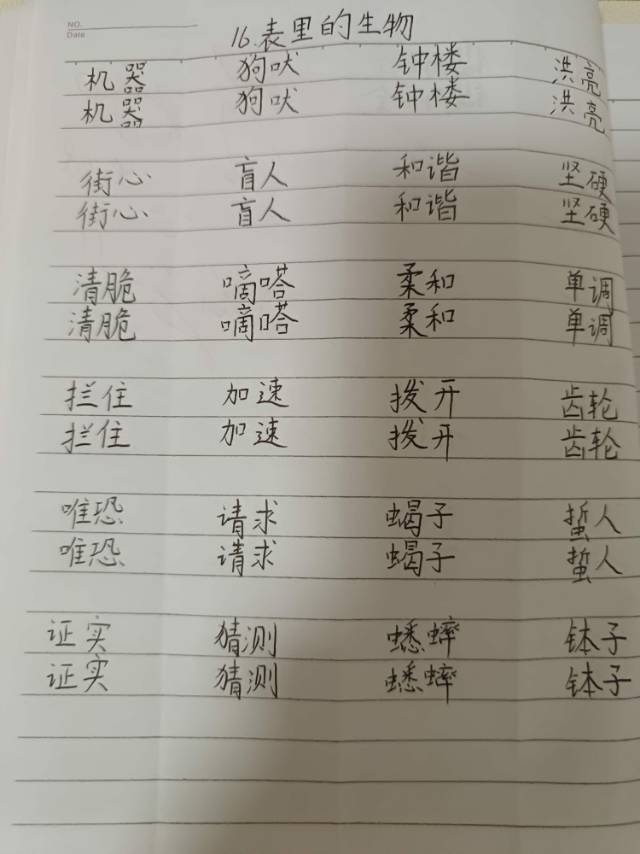 NO.
Date
16.表里的生物
机器 狗吠 钟楼 洪亮
机器 狗吠 钟楼 洪亮
街心 盲人 和谐 坚硬
街心 盲人 和谐 坚硬
清脆 嘀嗒 柔和 单调
清脆 嘀嗒 柔和 单调
拦住 加速 拨开 齿轮
拦住 加速 拨开 齿轮
唯恐 请求 蝎子 蜇人
唯恐 请求 蝎子 蜇人
证实 猜测 蟋蟀 钵子
证实 猜测 蟋蟀 钵子